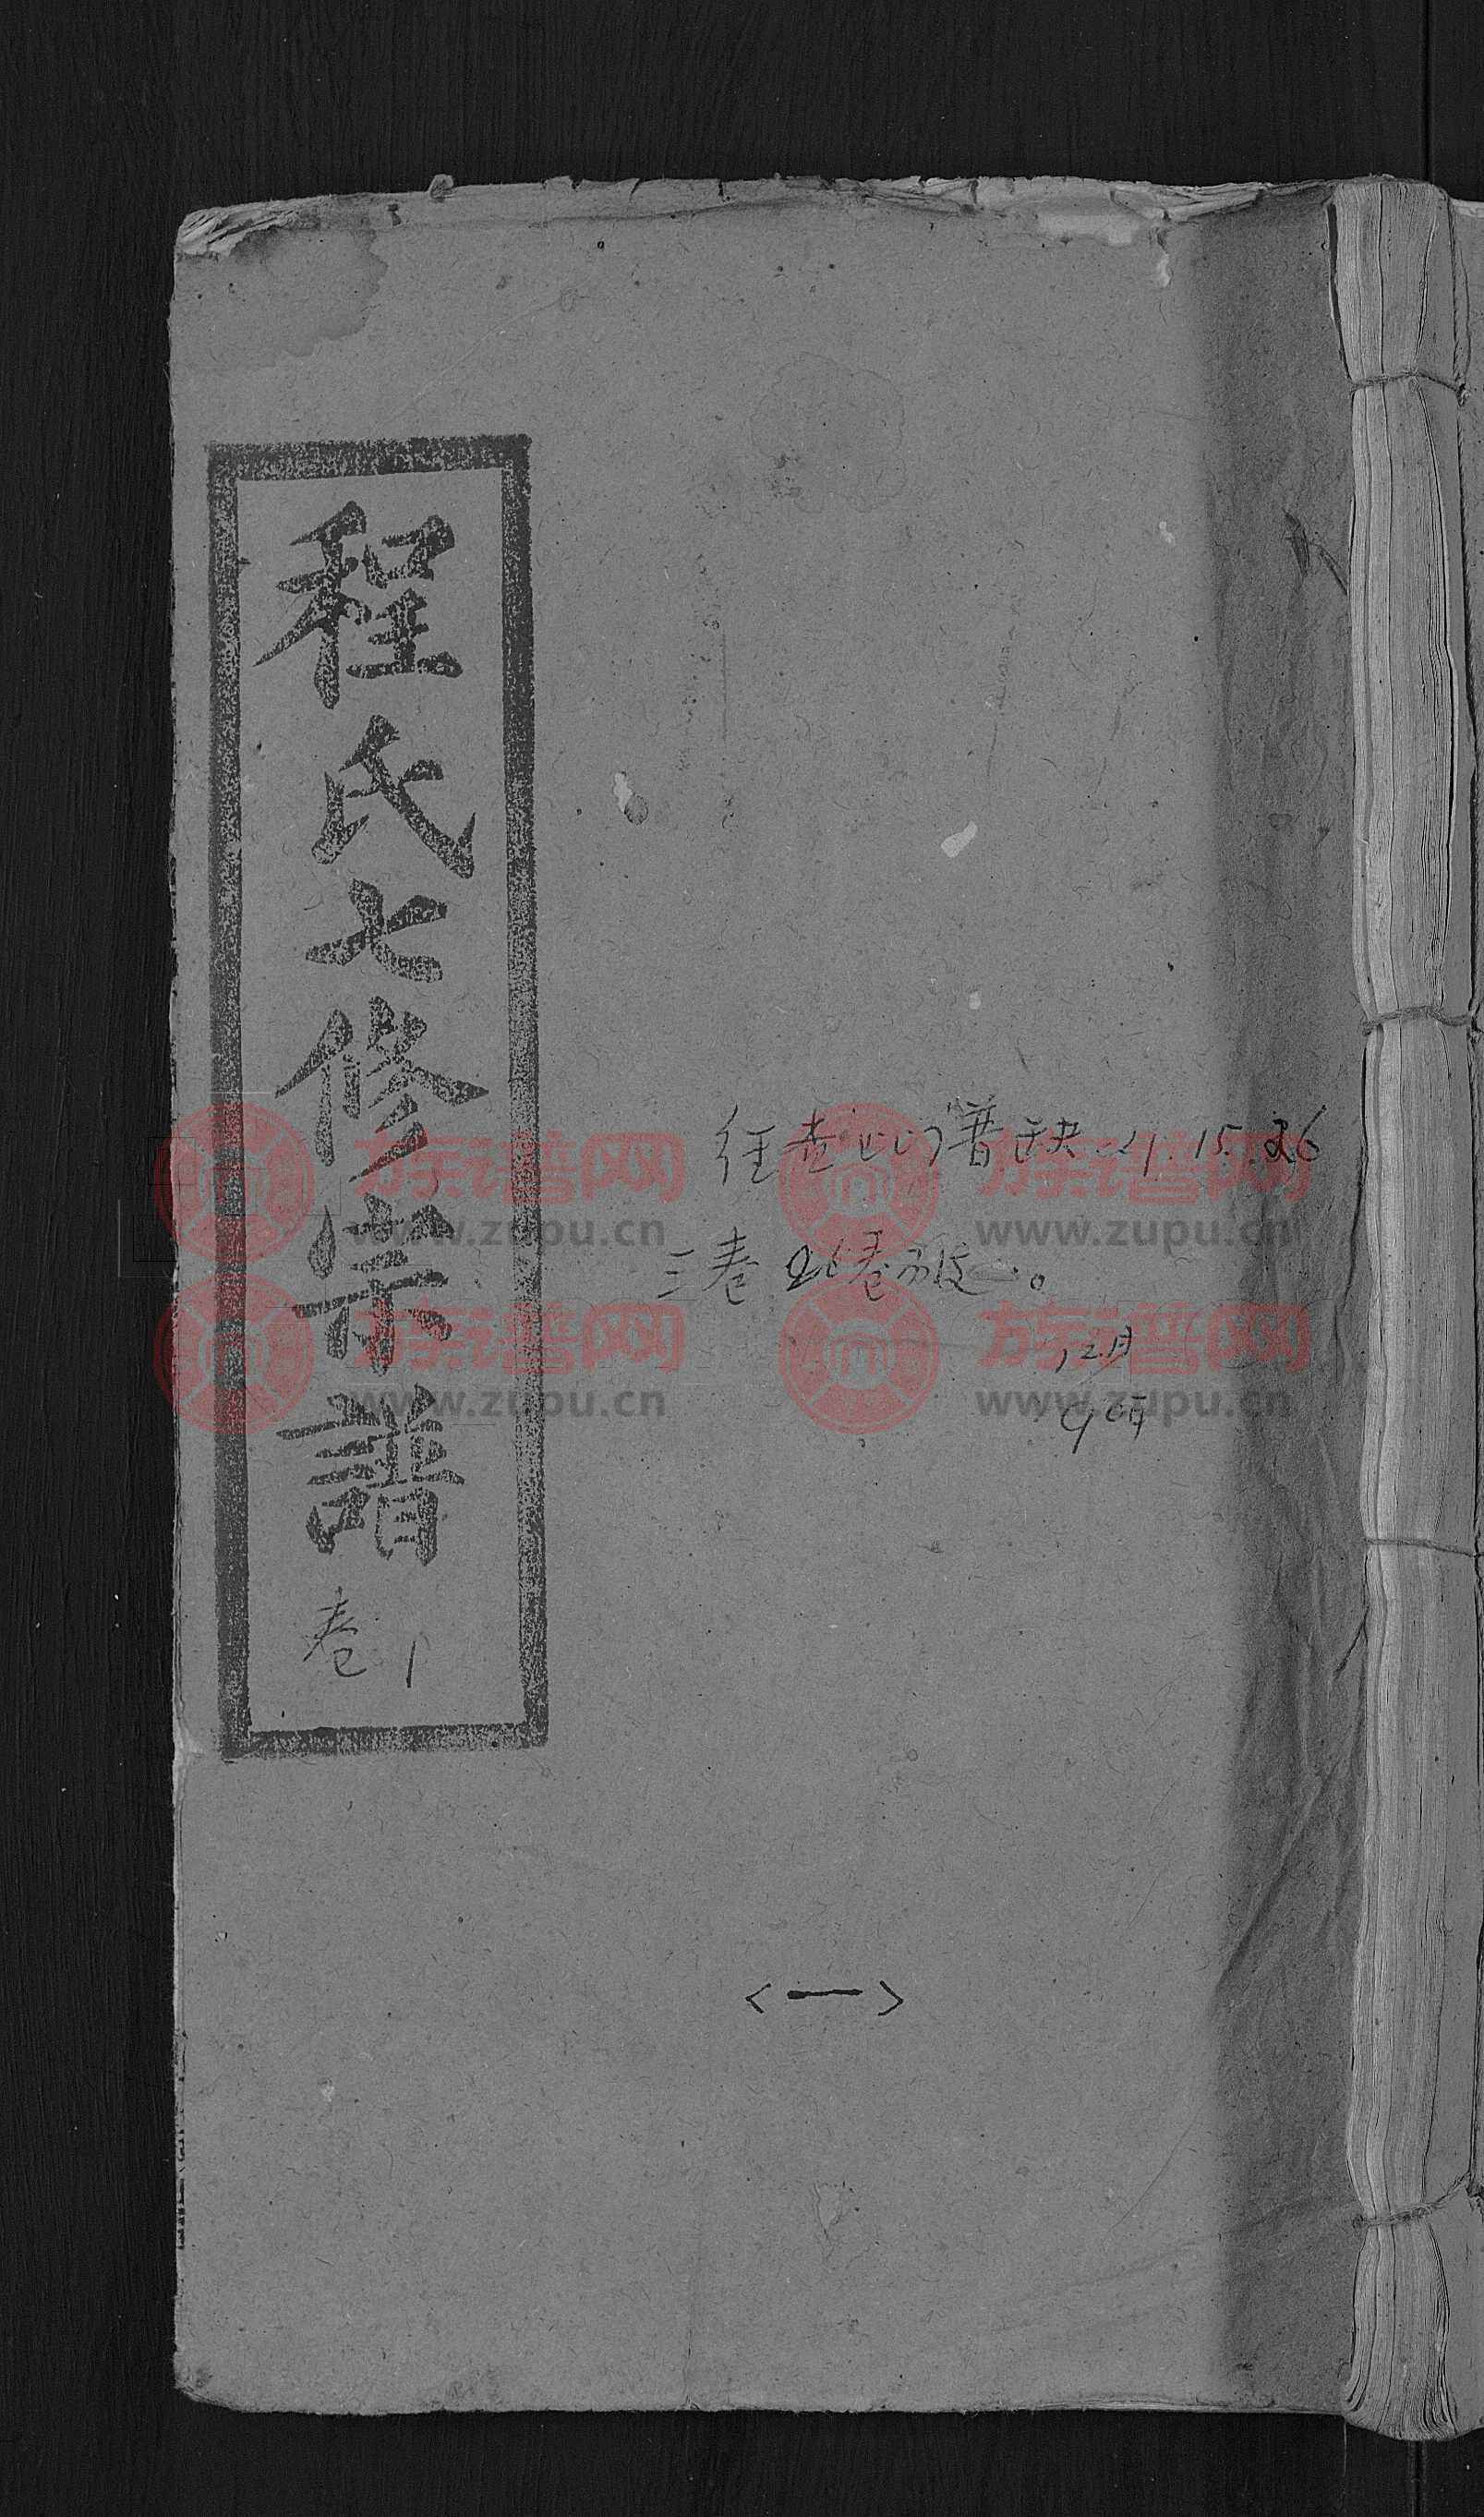 程氏七修宗譜
卷1
经查此门普缺 4.15.26
三卷 26卷
12月
9日
<一>
族谱网 族谱网
www.zupu.cn www.zupu.cn
族谱网 族谱网
www.zupu.cn www.zupu.cn